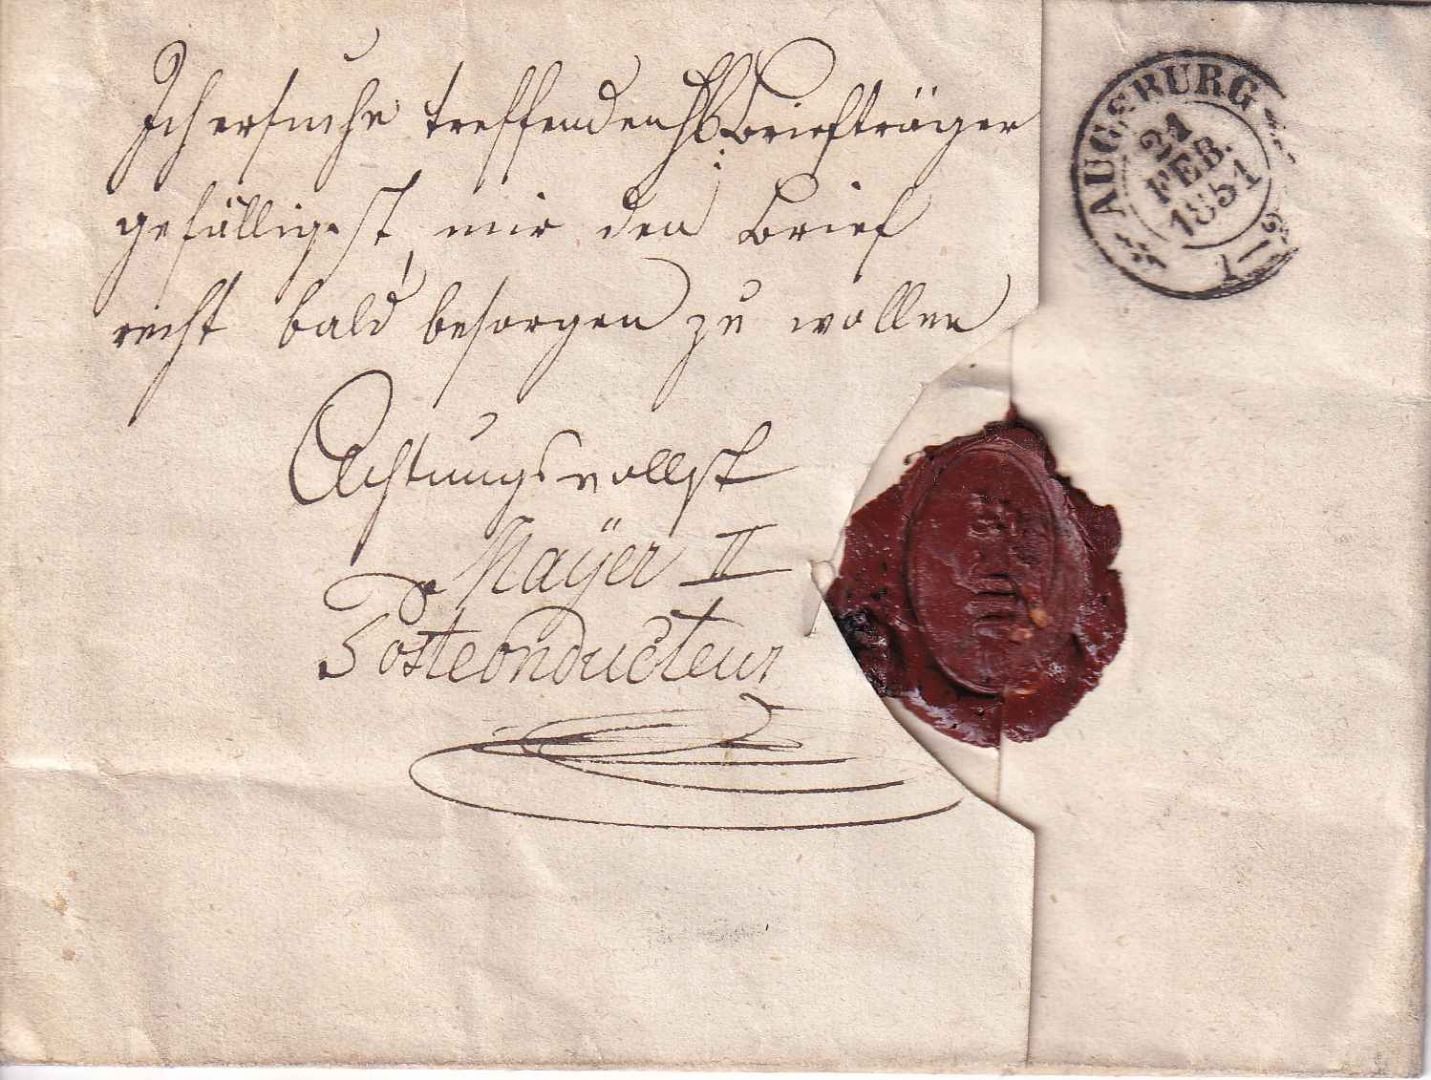 Ich ersuche treffenden H: Briefträger
gefälligst, mir den Brief
recht bald besorgen zu wollen
Achtungsvollst
Mayër II
Postconducteur
AUGSBURG
21
FEB.
1851